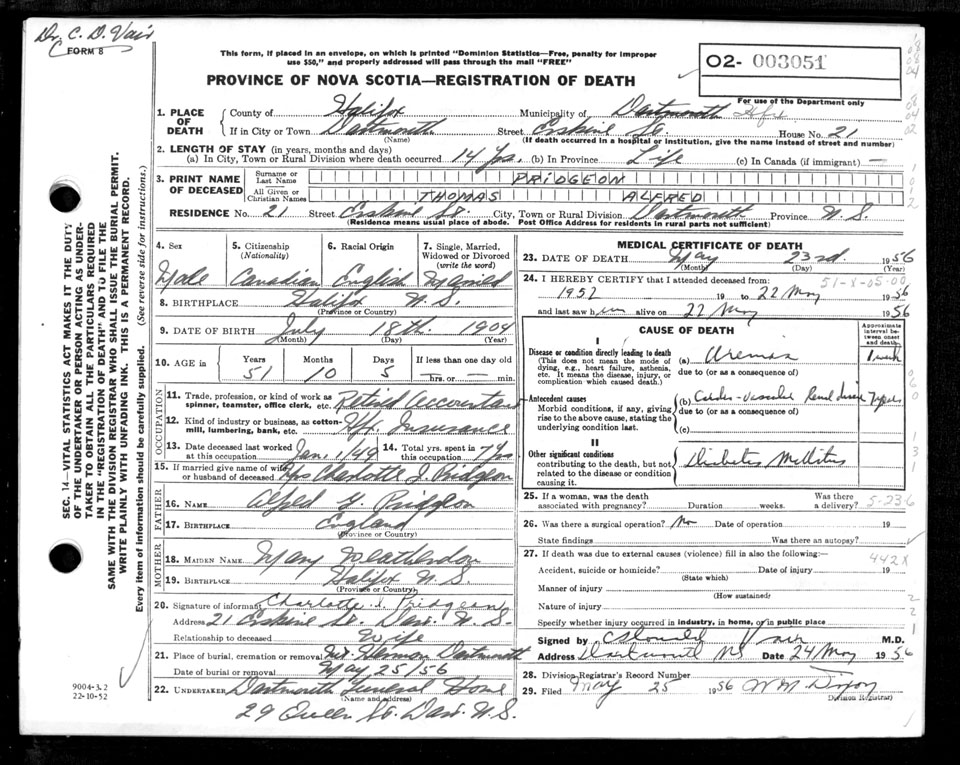 Dr. C. D. Vair
FORM 8
This form, if placed in an envelope, on which is printed "Dominion Statistics—Free, penalty for improper
use $50," and properly addressed will pass through the mail "FREE"
PROVINCE OF NOVA SCOTIA—REGISTRATION OF DEATH
O2- 003051
For use of the Department only
1. PLACE OF DEATH
County of Halifax Municipality of Dartmouth Hfx
If in City or Town Dartmouth Street Erskine St. House No. 21
(Name) (If death occurred in a hospital or institution, give the name instead of street and number)
2. LENGTH OF STAY (in years, months and days)
(a) In City, Town or Rural Division where death occurred 14 Yrs. (b) In Province Life (c) In Canada (if immigrant) —
3. PRINT NAME OF DECEASED
Surname or Last Name PRIDGEON
All Given or Christian Names THOMAS ALFRED
RESIDENCE No. 21 Street Erskine St. City, Town or Rural Division Dartmouth Province N.S.
(Residence means usual place of abode. Post Office Address for residents in rural parts not sufficient)
4. Sex 5. Citizenship (Nationality) 6. Racial Origin 7. Single, Married, Widowed or Divorced (write the word)
Male Canadian English Married
8. BIRTHPLACE Halifax N.S.
(Province or Country)
9. DATE OF BIRTH July 18th 1904
(Month) (Day) (Year)
10. AGE in Years Months Days If less than one day old
51 10 5 — hrs. or — min.
OCCUPATION
11. Trade, profession, or kind of work as spinner, teamster, office clerk, etc. Retired Accountant
12. Kind of industry or business, as cotton-mill, lumbering, bank, etc. Hfx. Insurance
13. Date deceased last worked at this occupation Jan. 1/49 14. Total yrs. spent in this occupation 7 yrs
15. If married give name of wife or husband of deceased Mrs Charlotte J. Pridgeon
FATHER
16. NAME Alfred Pridgeon
17. BIRTHPLACE England
(Province or Country)
MOTHER
18. MAIDEN NAME Mary
19. BIRTHPLACE Halifax N.S.
(Province or Country)
20. Signature of informant Charlotte J. Pridgeon
Address 21 Erskine St. Dart. N.S.
Relationship to deceased Wife
21. Place of burial, cremation or removal Mt. Hermon Dartmouth
Date of burial or removal May 25/56
22. UNDERTAKER Dartmouth Funeral Home
(Name and address)
29 Queen St. Dart. N.S.
MEDICAL CERTIFICATE OF DEATH
23. DATE OF DEATH May 23rd. 1956
(Month) (Day) (Year)
24. I HEREBY CERTIFY that I attended deceased from:
51-X-05-00
1952 19 to 22 May 1956
and last saw him alive on 22 May 1956
CAUSE OF DEATH
Approximate interval between onset and death
I
Disease or condition directly leading to death
(This does not mean the mode of dying, e.g., heart failure, asthenia, etc. It means the disease, injury, or complication which caused death.)
(a) Uremia 1 week
due to (or as a consequence of)
Antecedent causes
Morbid conditions, if any, giving rise to the above cause, stating the underlying condition last.
(b) Cardio-vascular Renal Disease 7 years
due to (or as a consequence of)
(c)
II
Other significant conditions
contributing to the death, but not related to the disease or condition causing it.
Diabetes Mellitus
25. If a woman, was the death associated with pregnancy? Duration weeks. Was there a delivery?
5-23-6
26. Was there a surgical operation? No Date of operation 19
State findings Was there an autopsy?
27. If death was due to external causes (violence) fill in also the following:—
442X
Accident, suicide or homicide? Date of injury 19
(State which)
Manner of injury
(How sustained)
Nature of injury
Specify whether injury occurred in industry, in home, or in public place
Signed by C Donald Vair M.D.
Address Dartmouth NS Date 24 May 1956
28. Division Registrar's Record Number
29. Filed May 25 1956 W M Dixon
(Division Registrar)
9004-3.2
22-10-52
SEC. 14—VITAL STATISTICS ACT MAKES IT THE DUTY
OF THE UNDERTAKER OR PERSON ACTING AS UNDER-
TAKER TO OBTAIN ALL THE PARTICULARS REQUIRED
IN THE "REGISTRATION OF DEATH" AND TO FILE THE
SAME WITH THE DIVISION REGISTRAR WHO SHALL ISSUE THE BURIAL PERMIT.
WRITE PLAINLY WITH UNFADING INK. THIS IS A PERMANENT RECORD.
Every item of information should be carefully supplied. (See reverse side for instructions.)